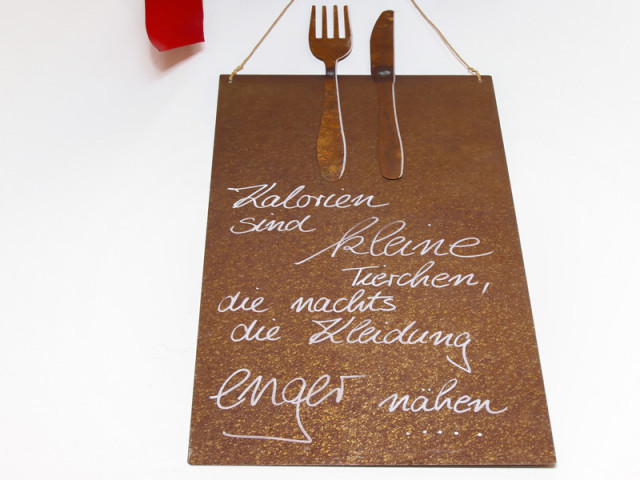 Kalorien
sind kleine
Tierchen,
die nachts
die Kleidung
enger nähen
.....